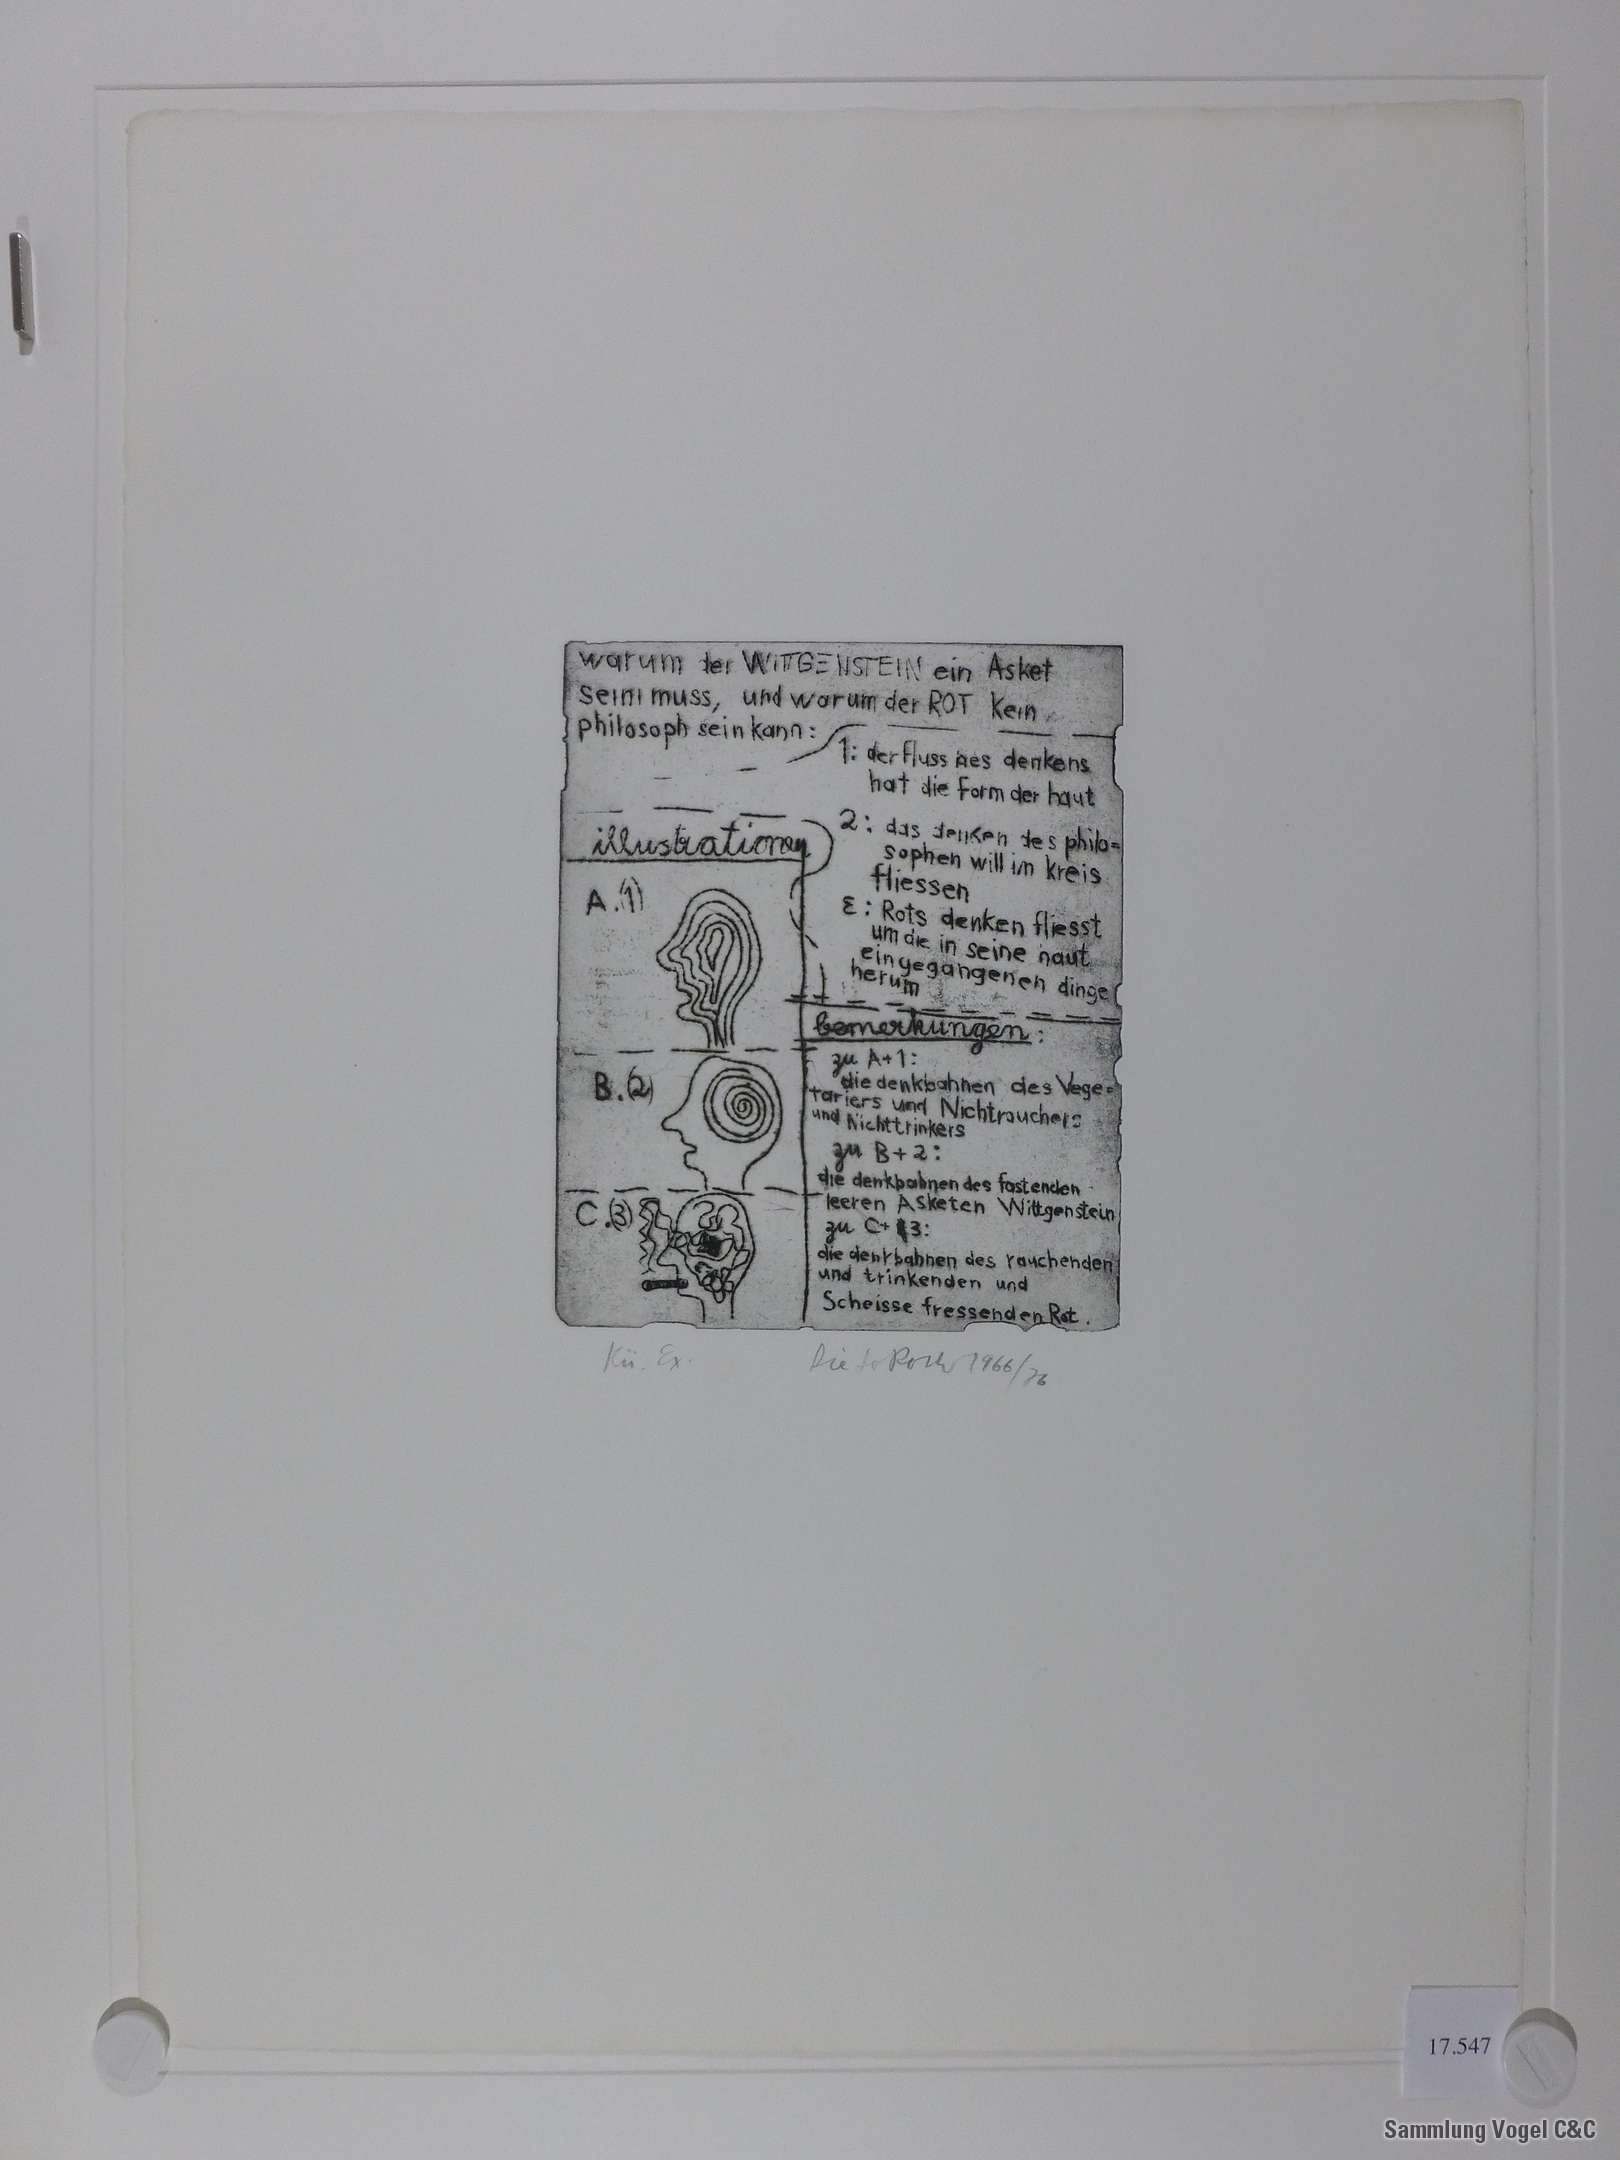 warum der WITTGENSTEIN ein Asket
sein muss, und warum der ROT kein
philosoph sein kann:
1: der fluss des denkens
hat die form der haut
2: das denken des philo=
sophen will im kreis
fliessen
3: Rots denken fliesst
um die in seine haut
eingegangenen dinge
herum
illustrationen
A.(1)
B.(2)
C.(3)
bemerkungen:
zu A+1:
die denkbahnen des Vege=
tariers und Nichtrauchers
und Nichttrinkers
zu B+2:
die denkbahnen des fastenden
leeren Asketen Wittgenstein
zu C+3:
die denkbahnen des rauchenden
und trinkenden und
Scheisse fressenden Rot.
Kü. Ex.
Dieter Roth 1966/76
17.547
Sammlung Vogel C&C